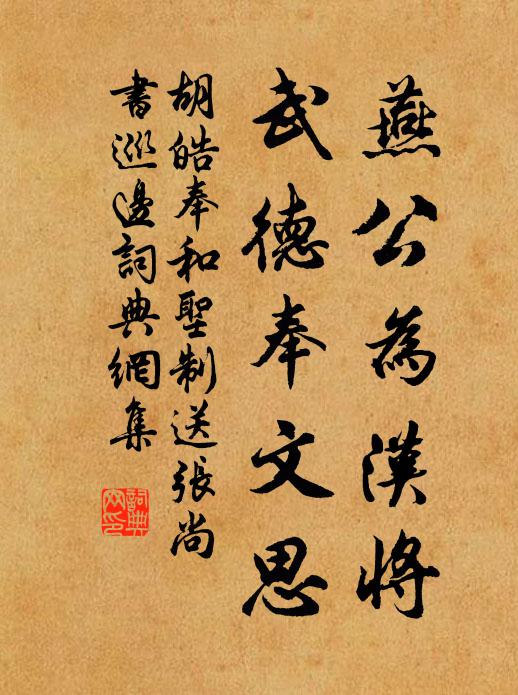 燕公為漢將
武德奉文思
胡皓奉和聖制送張尚
書巡邊詞典網集
詞典网印